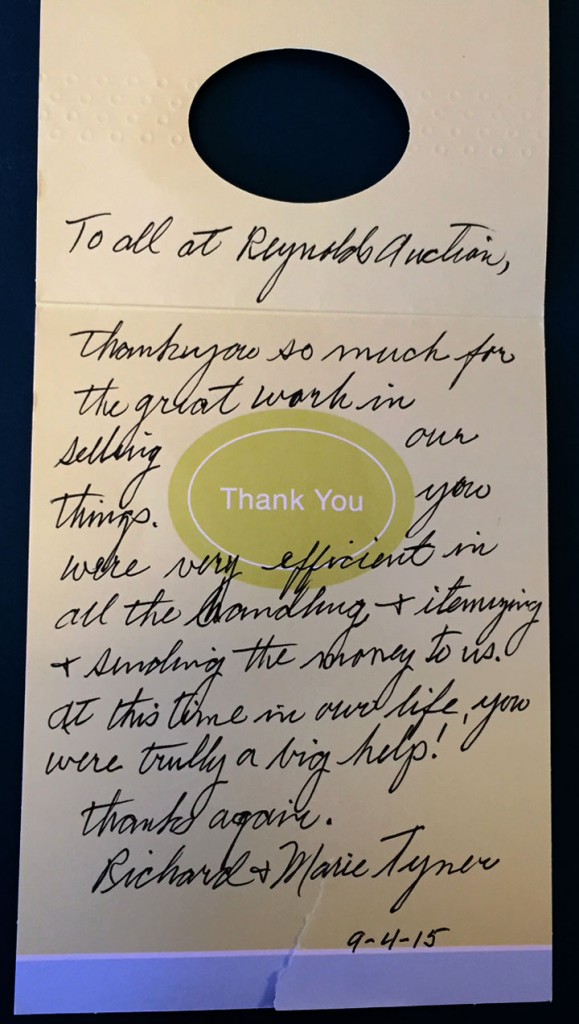 To all at Reynolds Auction,
Thankyou so much for
the great work in
selling our
Thank You
things. you
were very efficient in
all the handling + itemizing
+ sending the money to us.
At this time in our life, you
were trully a big help!
Thanks again.
Richard + Marie Tyner
9-4-15